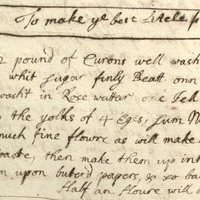 To make ye best Littele
2 pound of Curons well wash
whit sugar finly Beatt onn
wash't in Rose watter one
to the yolks of 4 Eges; sum
much fine flowre as will make
paste, then make them up int
upon buter'd papers, so
Half an houre will